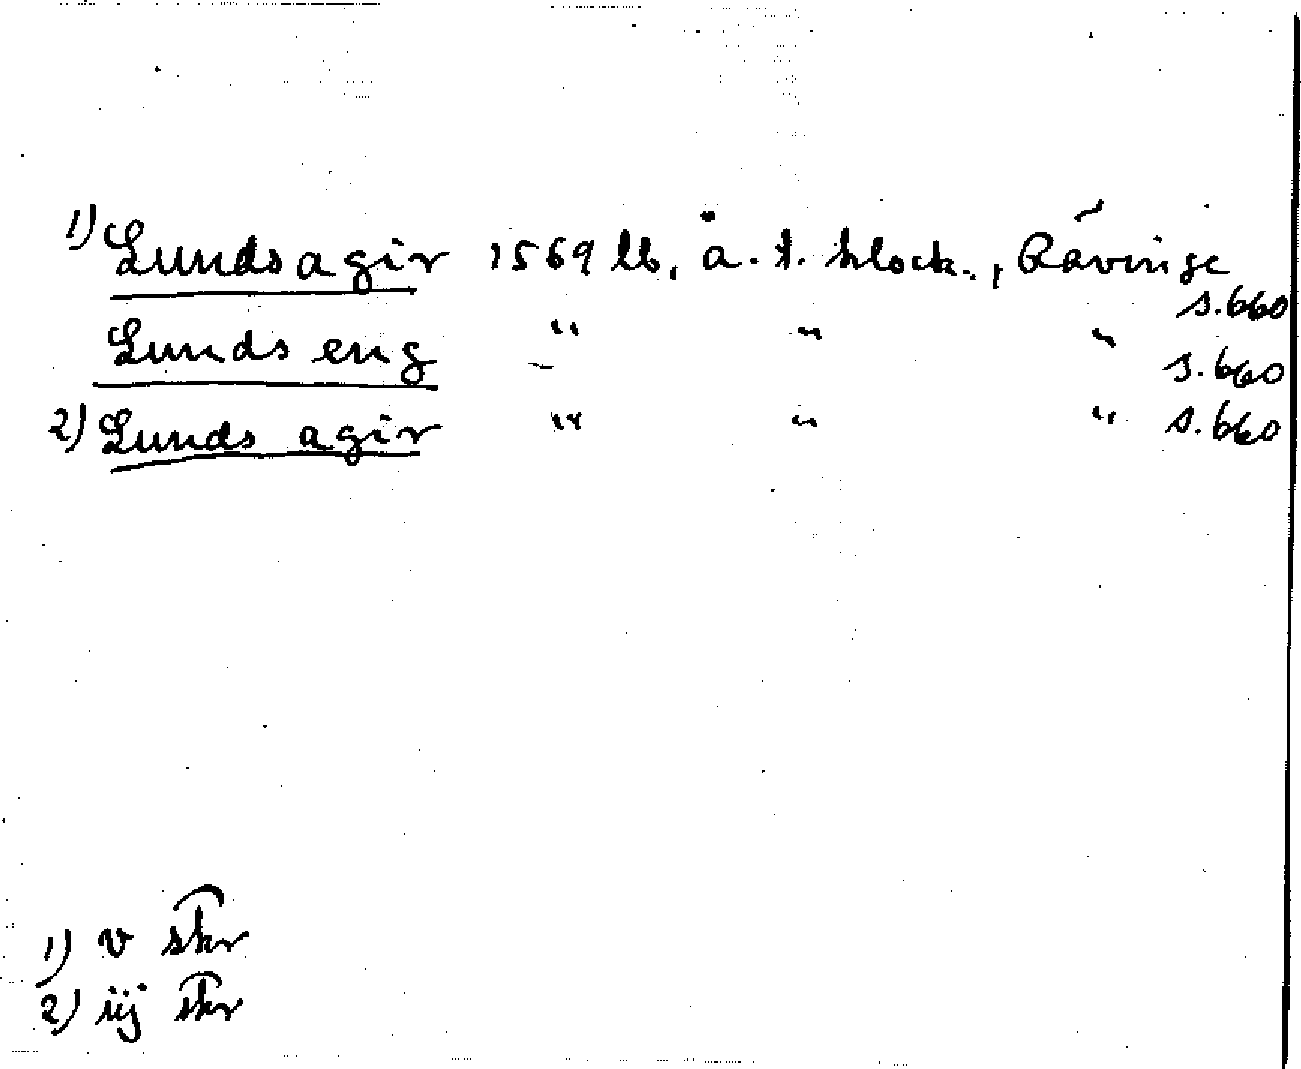 1) Lunds agir 1569 lb, å. t. klock., Rávinge
s.660
Lunds eng " " " s.660
2) Lunds agir " " " s.660
1) v skr
2) iij skr